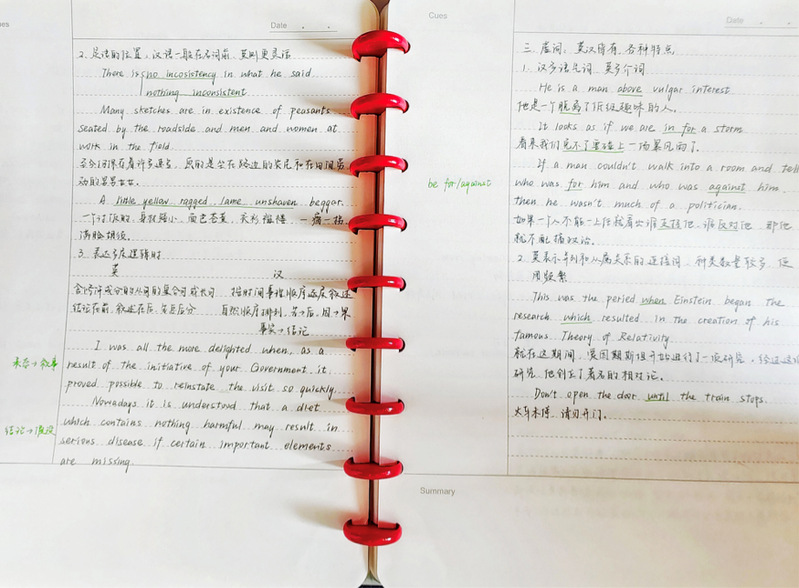 ues
Date
2. 定语的位置，汉语一般在名词前，英则更灵活
There is no incosistency in what he said
nothing inconsistent
Many sketches are in existence of peasants
seated by the roadside and men and women at
work in the field.
动的男男女女。
A little yellow ragged lame unshaven beggar.
满脸胡须。
3. 表达多层逻辑时
英 汉
事实→结论
I was all the more delighted when, as a
表态→叙事
result of the initiative of your Government it
proved possible to reinstate the visit so quickly.
Nowadays it is understood that a diet
结论→假设
which contains nothing harmful may result in
serious disease if certain important elements
are missing
Cues
Date
三. 虚词：英汉皆有，各种特点
1. 汉多语气词，英多介词
He is a man above vulgar interest.
他是一个脱离了低级趣味的人。
It looks as if we are in for a storm.
看来我们免不了要碰上一场暴风雨了。
If a man couldn't walk into a room and tell
be for/against
who was for him and who was against him.
then he wasn't much of a politician.
如果一个人不能一上任就看出谁支持他，谁反对他，那他
就不配搞政治。
2. 英表示并列和从属关系的连接词，种类数量较多，使
用频繁
This was the period when Einstein began the
research which resulted in the creation of his
famous Theory of Relativity.
就在这期间，爱因斯坦开始进行了一项研究，经过这项
研究，他创立了著名的相对论。
Don't open the door until the train stops.
火车未停，请勿开门。
Summary